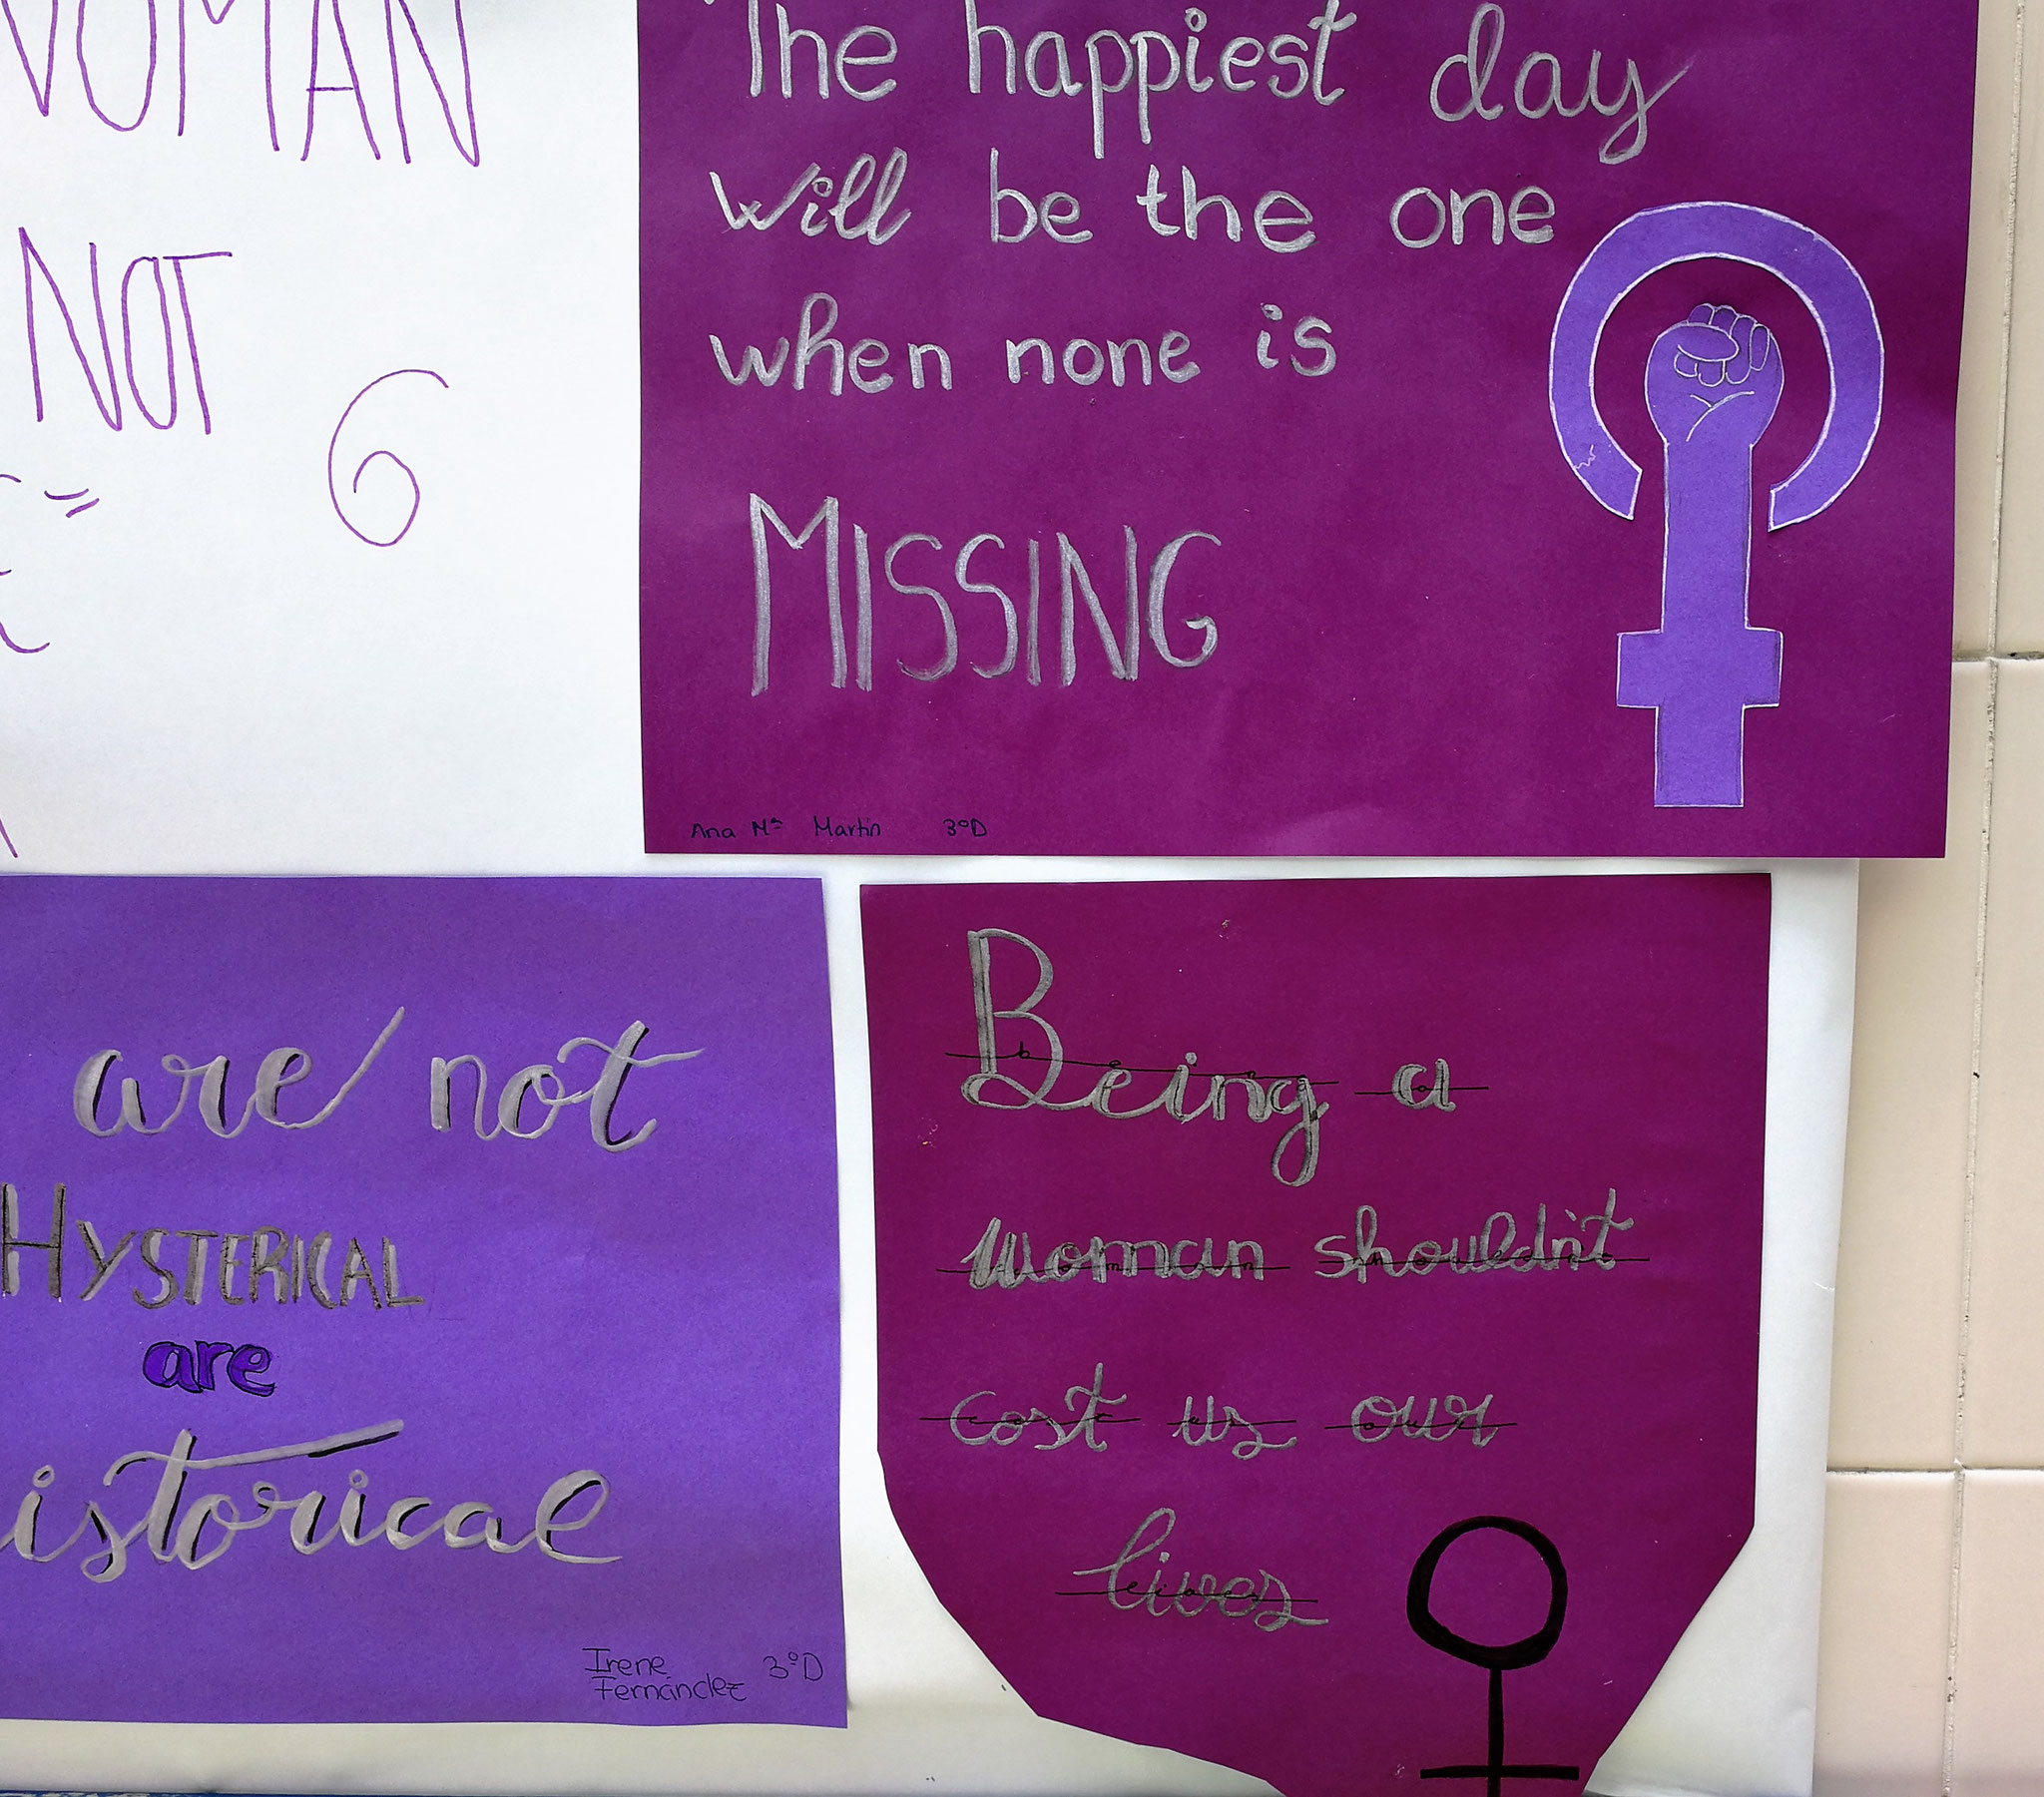 WOMAN
NOT
The happiest day
will be the one
when none is
MISSING
Ana Mª Martín 3ºD
are not
HYSTERICAL
are
istorical
Irene
Fernández 3ºD
Being a
woman shouldn't
cost us our
lives